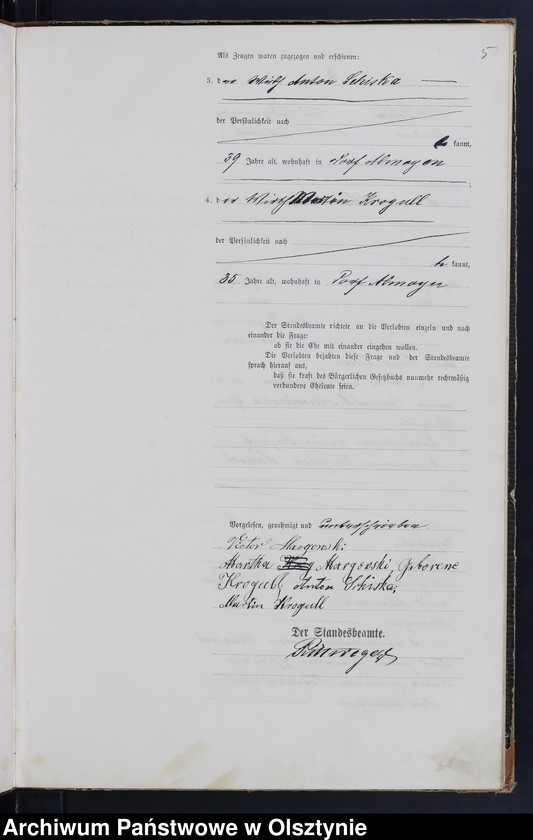 5
Als Zeugen waren zugezogen und erschienen:
3. der Wirth Anton Schiska
der Persönlichkeit nach
be kannt,
39 Jahre alt, wohnhaft in Dorf Almoyen
;
4. der Wirth Martin Krogull
der Persönlichkeit nach
be kannt,
35 Jahre alt, wohnhaft in Dorf Almoyen
Der Standesbeamte richtete an die Verlobten einzeln und nach
einander die Frage:
ob sie die Ehe mit einander eingehen wollen.
Die Verlobten bejahten diese Frage und der Standesbeamte
sprach hierauf aus,
daß sie kraft des Bürgerlichen Gesetzbuchs nunmehr rechtmäßig
verbundene Eheleute seien.
Vorgelesen, genehmigt und unterschrieben
Victor Margowski
Martha Margowski, geborene
Krogull, Anton Schiska,
Martin Krogull
Der Standesbeamte.
Archiwum Państwowe w Olsztynie